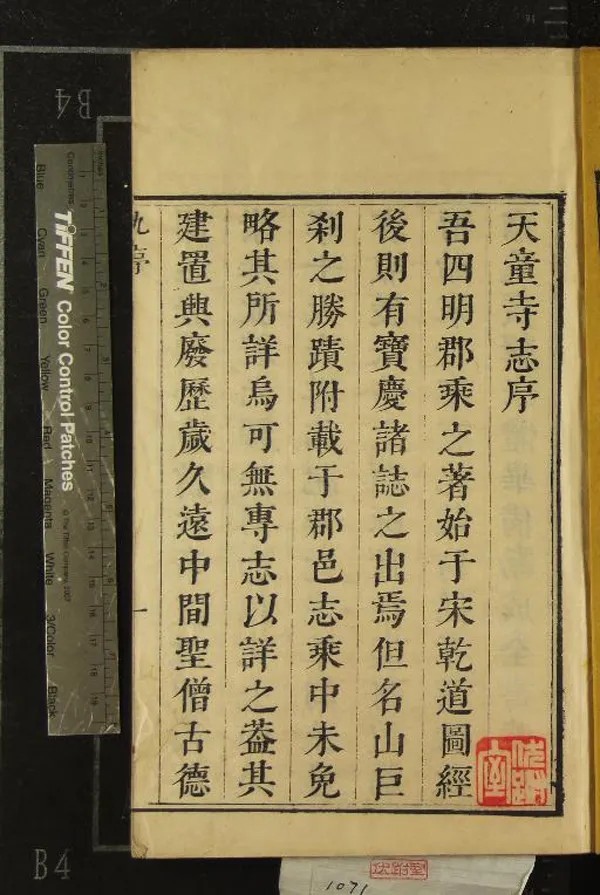 天童寺志序
吾四明郡乘之著始于宋乾道圖經
後則有寶慶諸誌之出焉但名山巨
刹之勝蹟附載于郡邑志乘中未免
略其所詳烏可無專志以詳之葢其
建置興廢歷歲久遠中間聖僧古德
序
一
B4
B4
TIFFEN Color Control Patches
© The Tiffen Company, 2007
Centimetres
Inches
Blue
Cyan
Green
Yellow
Red
Magenta
White
3/Color
Black
1071